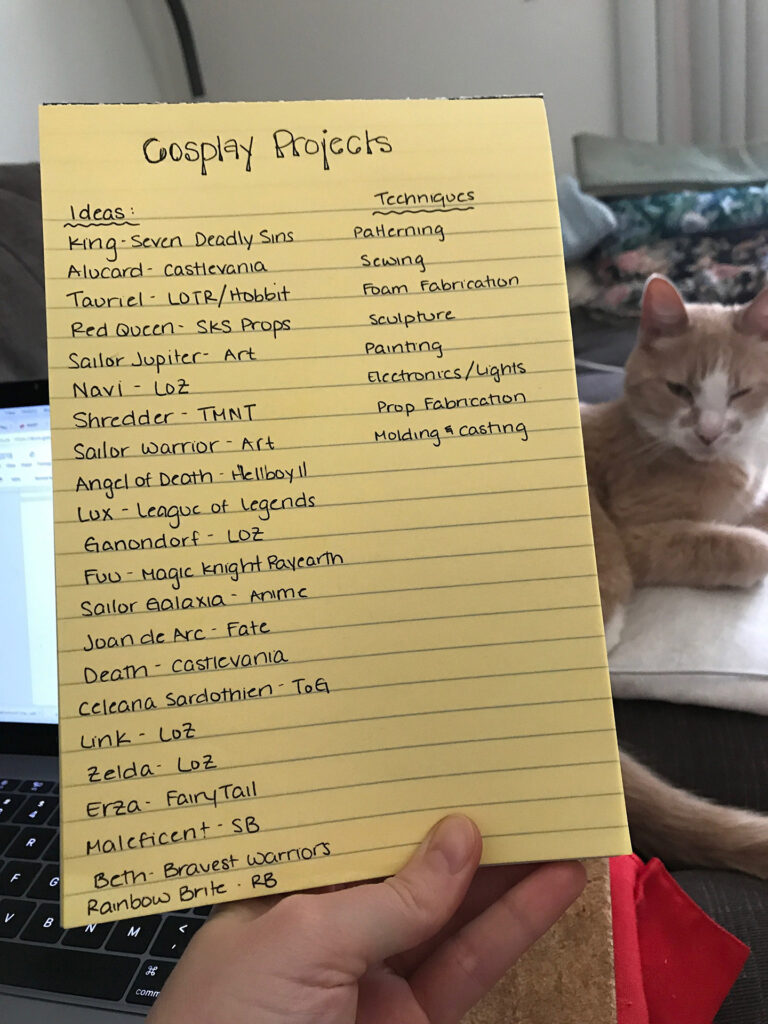 Cosplay Projects
Ideas:
King - Seven Deadly Sins
Alucard - Castlevania
Tauriel - LOTR/Hobbit
Red Queen - SKS Props
Sailor Jupiter - Art
Navi - LoZ
Shredder - TMNT
Sailor Warrior - Art
Angel of Death - Hellboy II
Lux - League of Legends
Ganondorf - LOZ
Fuu - Magic Knight Rayearth
Sailor Galaxia - Anime
Joan de Arc - Fate
Death - Castlevania
Celeana Sardothien - ToG
Link - LoZ
Zelda - LoZ
Erza - Fairy Tail
Maleficent - SB
Beth - Bravest Warriors
Rainbow Brite - RB
Techniques
Patterning
Sewing
Foam Fabrication
Sculpture
Painting
Electronics/Lights
Prop Fabrication
Molding & Casting
R
F
G
V
B
N
M
<
,
⌘